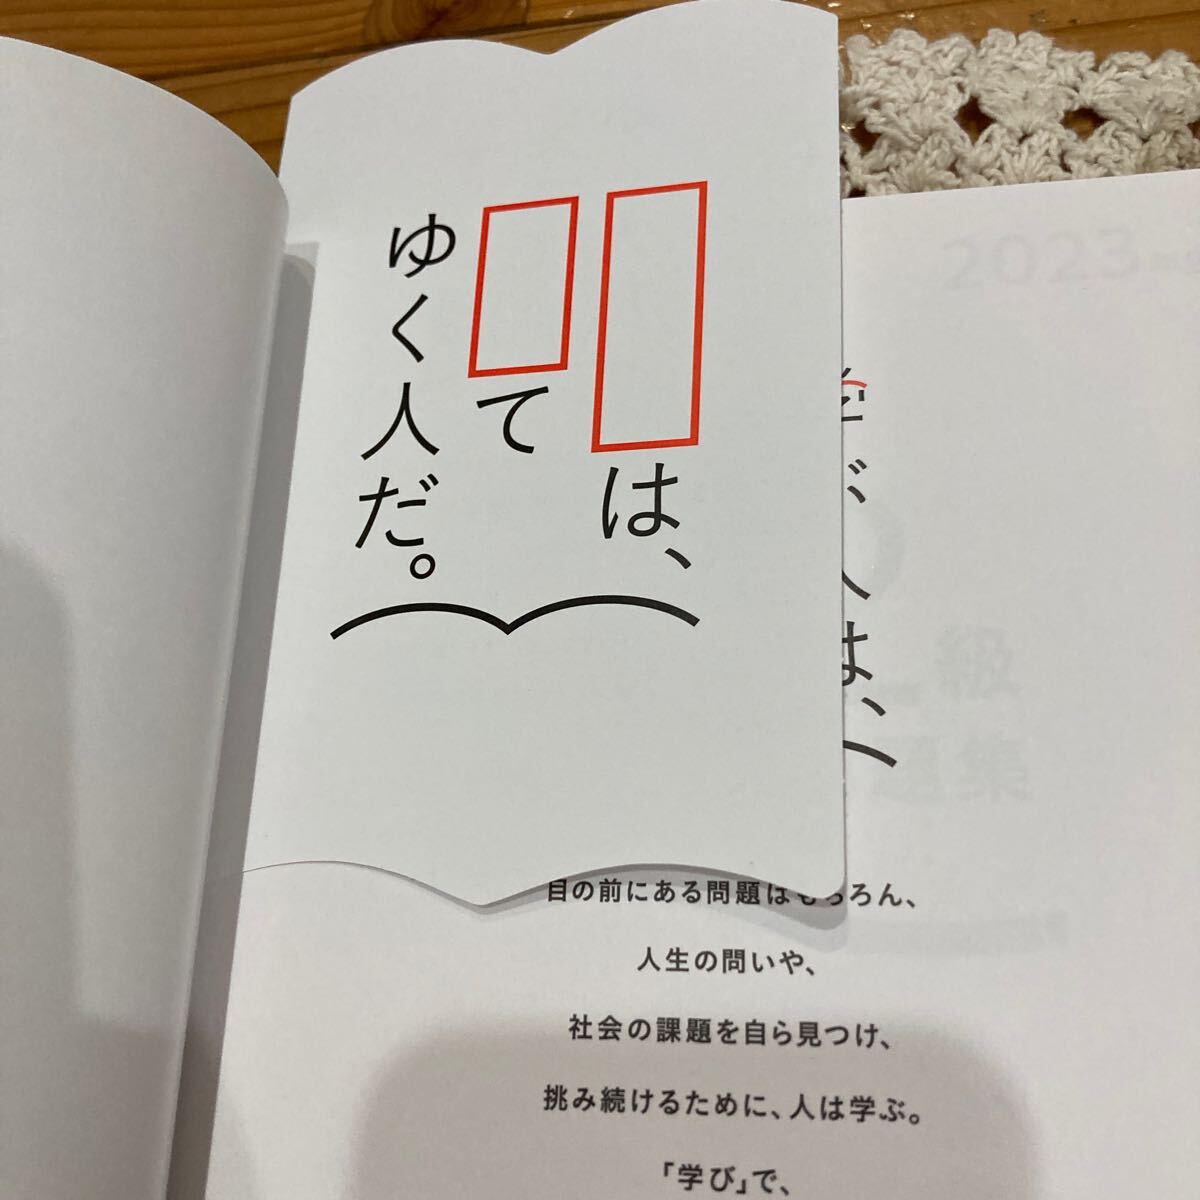 は、
て
ゆく人だ。
2023
学ぶ人は、
級
題集
目の前にある問題はもちろん、
人生の問いや、
社会の課題を自ら見つけ、
挑み続けるために、人は学ぶ。
「学び」で、